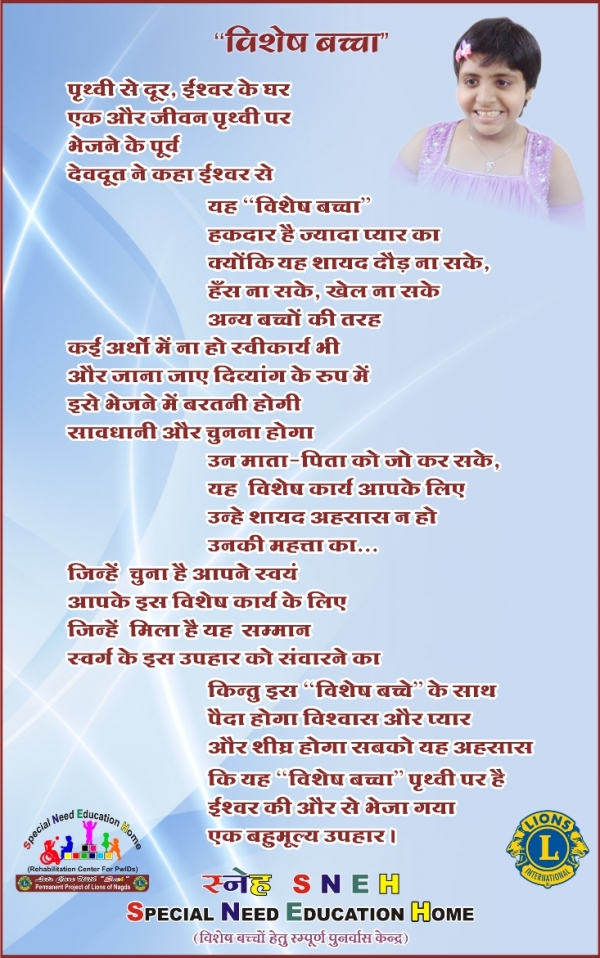 “विशेष बच्चा”
पृथ्वी से दूर, ईश्वर के घर
एक और जीवन पृथ्वी पर
भेजने के पूर्व
देवदूत ने कहा ईश्वर से
यह “विशेष बच्चा”
हकदार है ज्यादा प्यार का
क्योंकि यह शायद दौड़ ना सके,
हँस ना सके, खेल ना सके
अन्य बच्चों की तरह
कई अर्थो में ना हो स्वीकार्य भी
और जाना जाए दिव्यांग के रुप में
इसे भेजने में बरतनी होगी
सावधानी और चुनना होगा
उन माता-पिता को जो कर सके,
यह विशेष कार्य आपके लिए
उन्हे शायद अहसास न हो
उनकी महत्ता का...
जिन्हें चुना है आपने स्वयं
आपके इस विशेष कार्य के लिए
जिन्हें मिला है यह सम्मान
स्वर्ग के इस उपहार को संवारने का
किन्तु इस “विशेष बच्चे” के साथ
पैदा होगा विश्वास और प्यार
और शीघ्र होगा सबको यह अहसास
कि यह “विशेष बच्चा” पृथ्वी पर है
ईश्वर की और से भेजा गया
एक बहुमूल्य उपहार।
Special Need Education Home
(Rehabilitation Center For PwIDs)
Permanent Project of Lions of Nagda
LIONS
L
INTERNATIONAL
स्नेह SNEH
SPECIAL NEED EDUCATION HOME
(विशेष बच्चों हेतु सम्पूर्ण पुनर्वास केन्द्र)